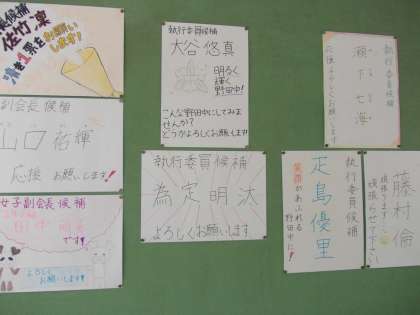 長候補
佐竹 凜
清き1票を
お願いします!
副会長候補
山口祐輝
応援 お願いします!
女子副会長候補
です!!
よろしく
お願いします!
執行委員候補
大谷 悠真
明るく
輝く
野田中!
こんな野田中にしてみま
せんか?
どうかよろしくお願いします
執行委員候補
為定明汰
よろしくお願いします
執行委員候補
瀬下七海
応援よろしくお願いします!
執行委員候補
疋島優里
笑顔があふれる
野田中に!
執行委員候補
藤村倫
頑張ります
頑張らせて下さい